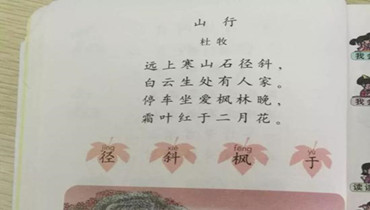 山行
杜牧
远上寒山石径斜，
白云生处有人家。
停车坐爱枫林晚，
霜叶红于二月花。
jìng xié fēng yú
径 斜 枫 于
我
读